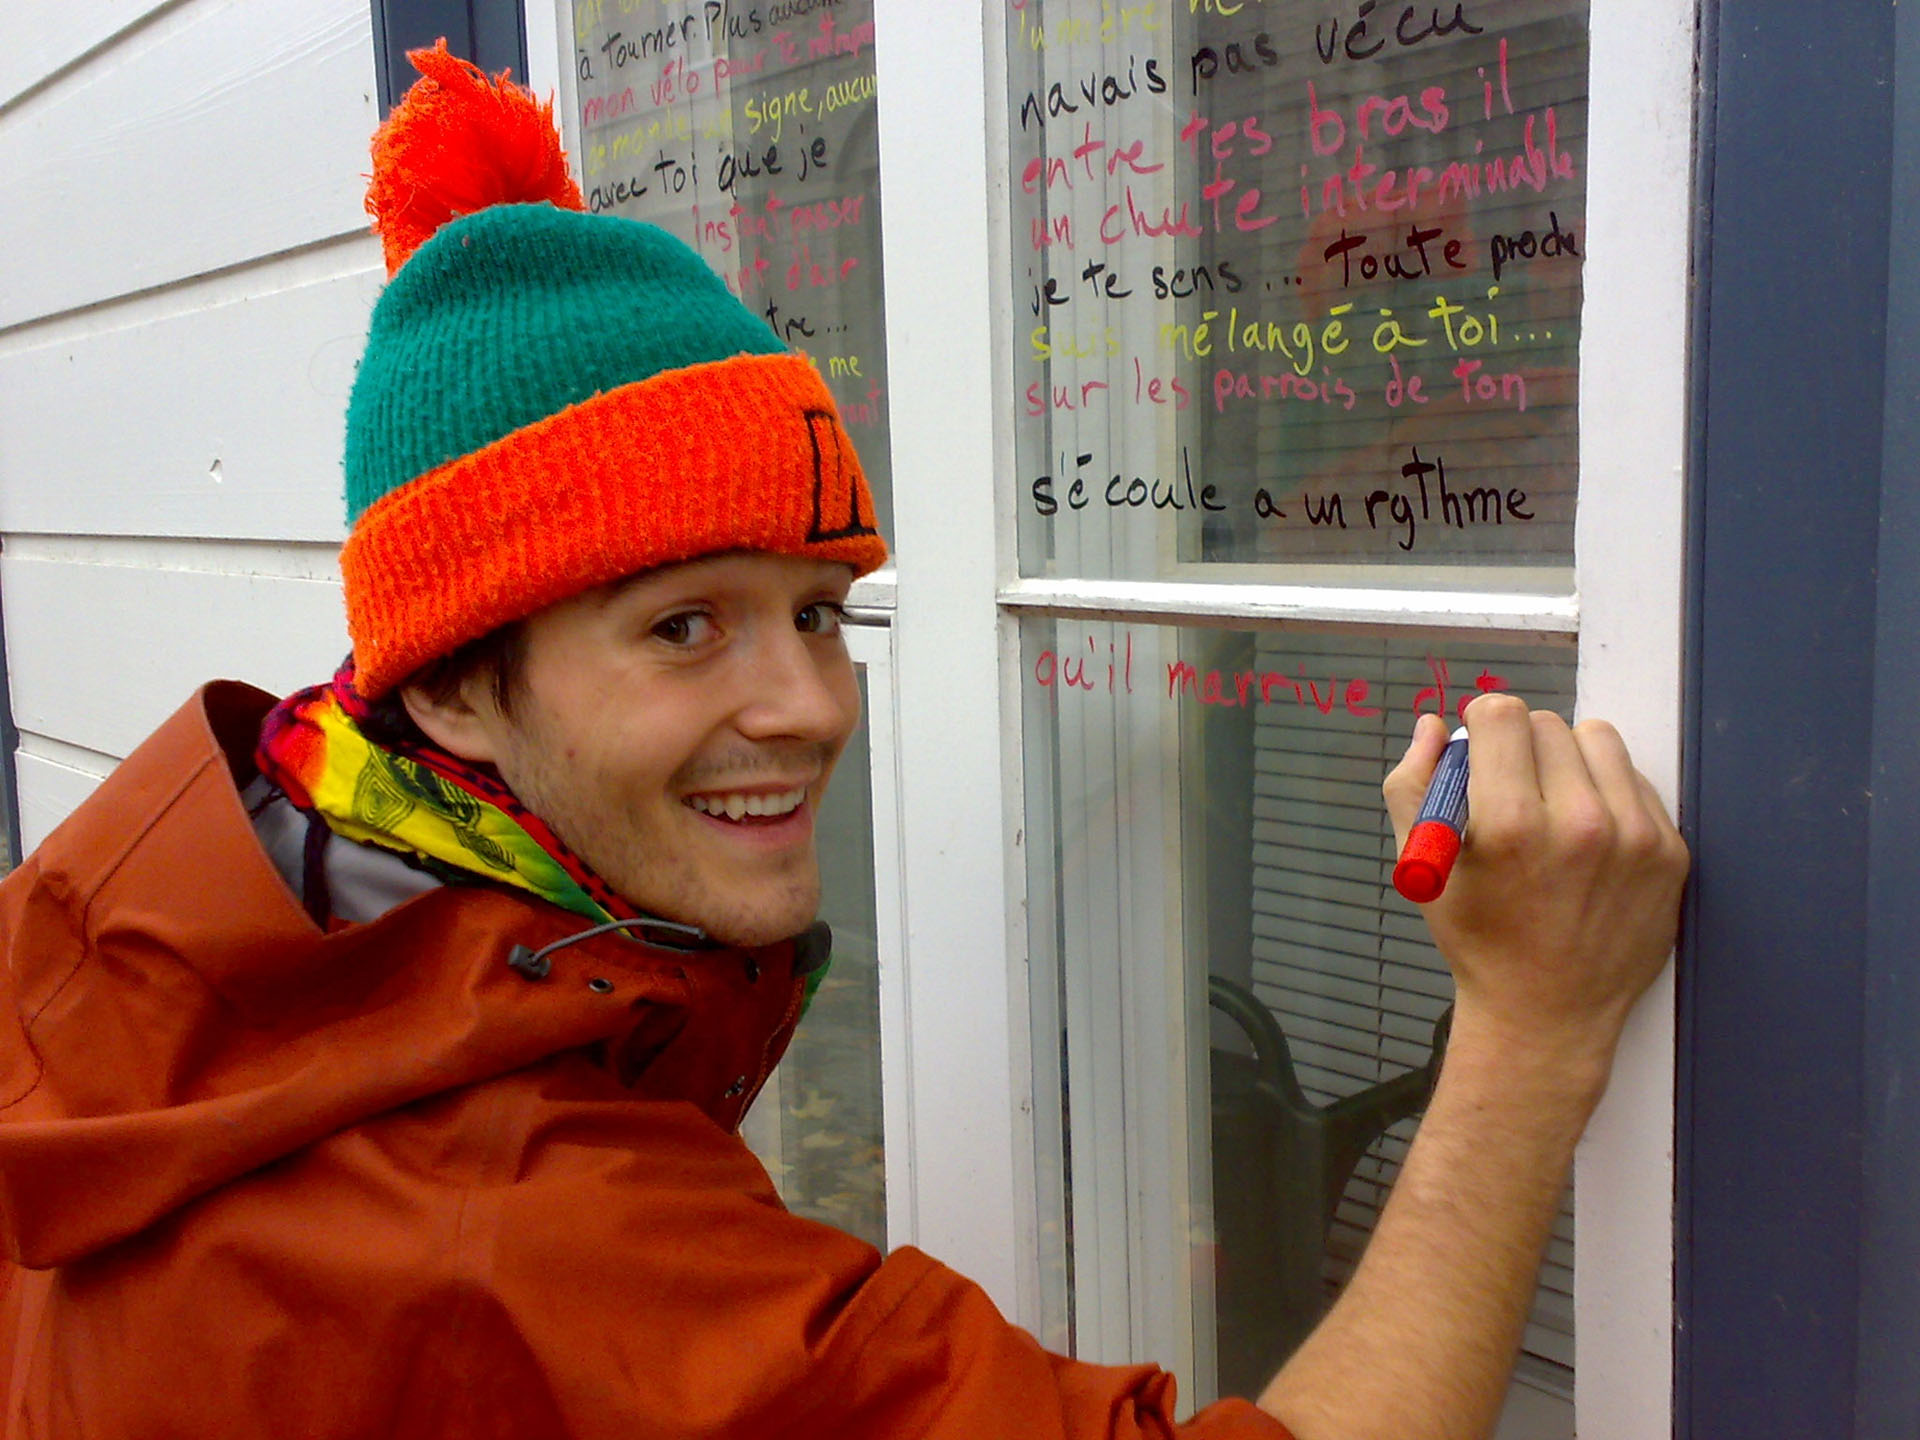 à tourner. Plus aucun
mon vélo pour te
demande un signe, aucun
avec toi que je
Instant passer
d'air
tre...
me
lumière ne
navais pas vécu
entre tes bras il
un chute interminable
je te sens... toute proche
suis mélangé à toi...
sur les parrois de ton
s'écoule a un rythme
qu'il marrive d'